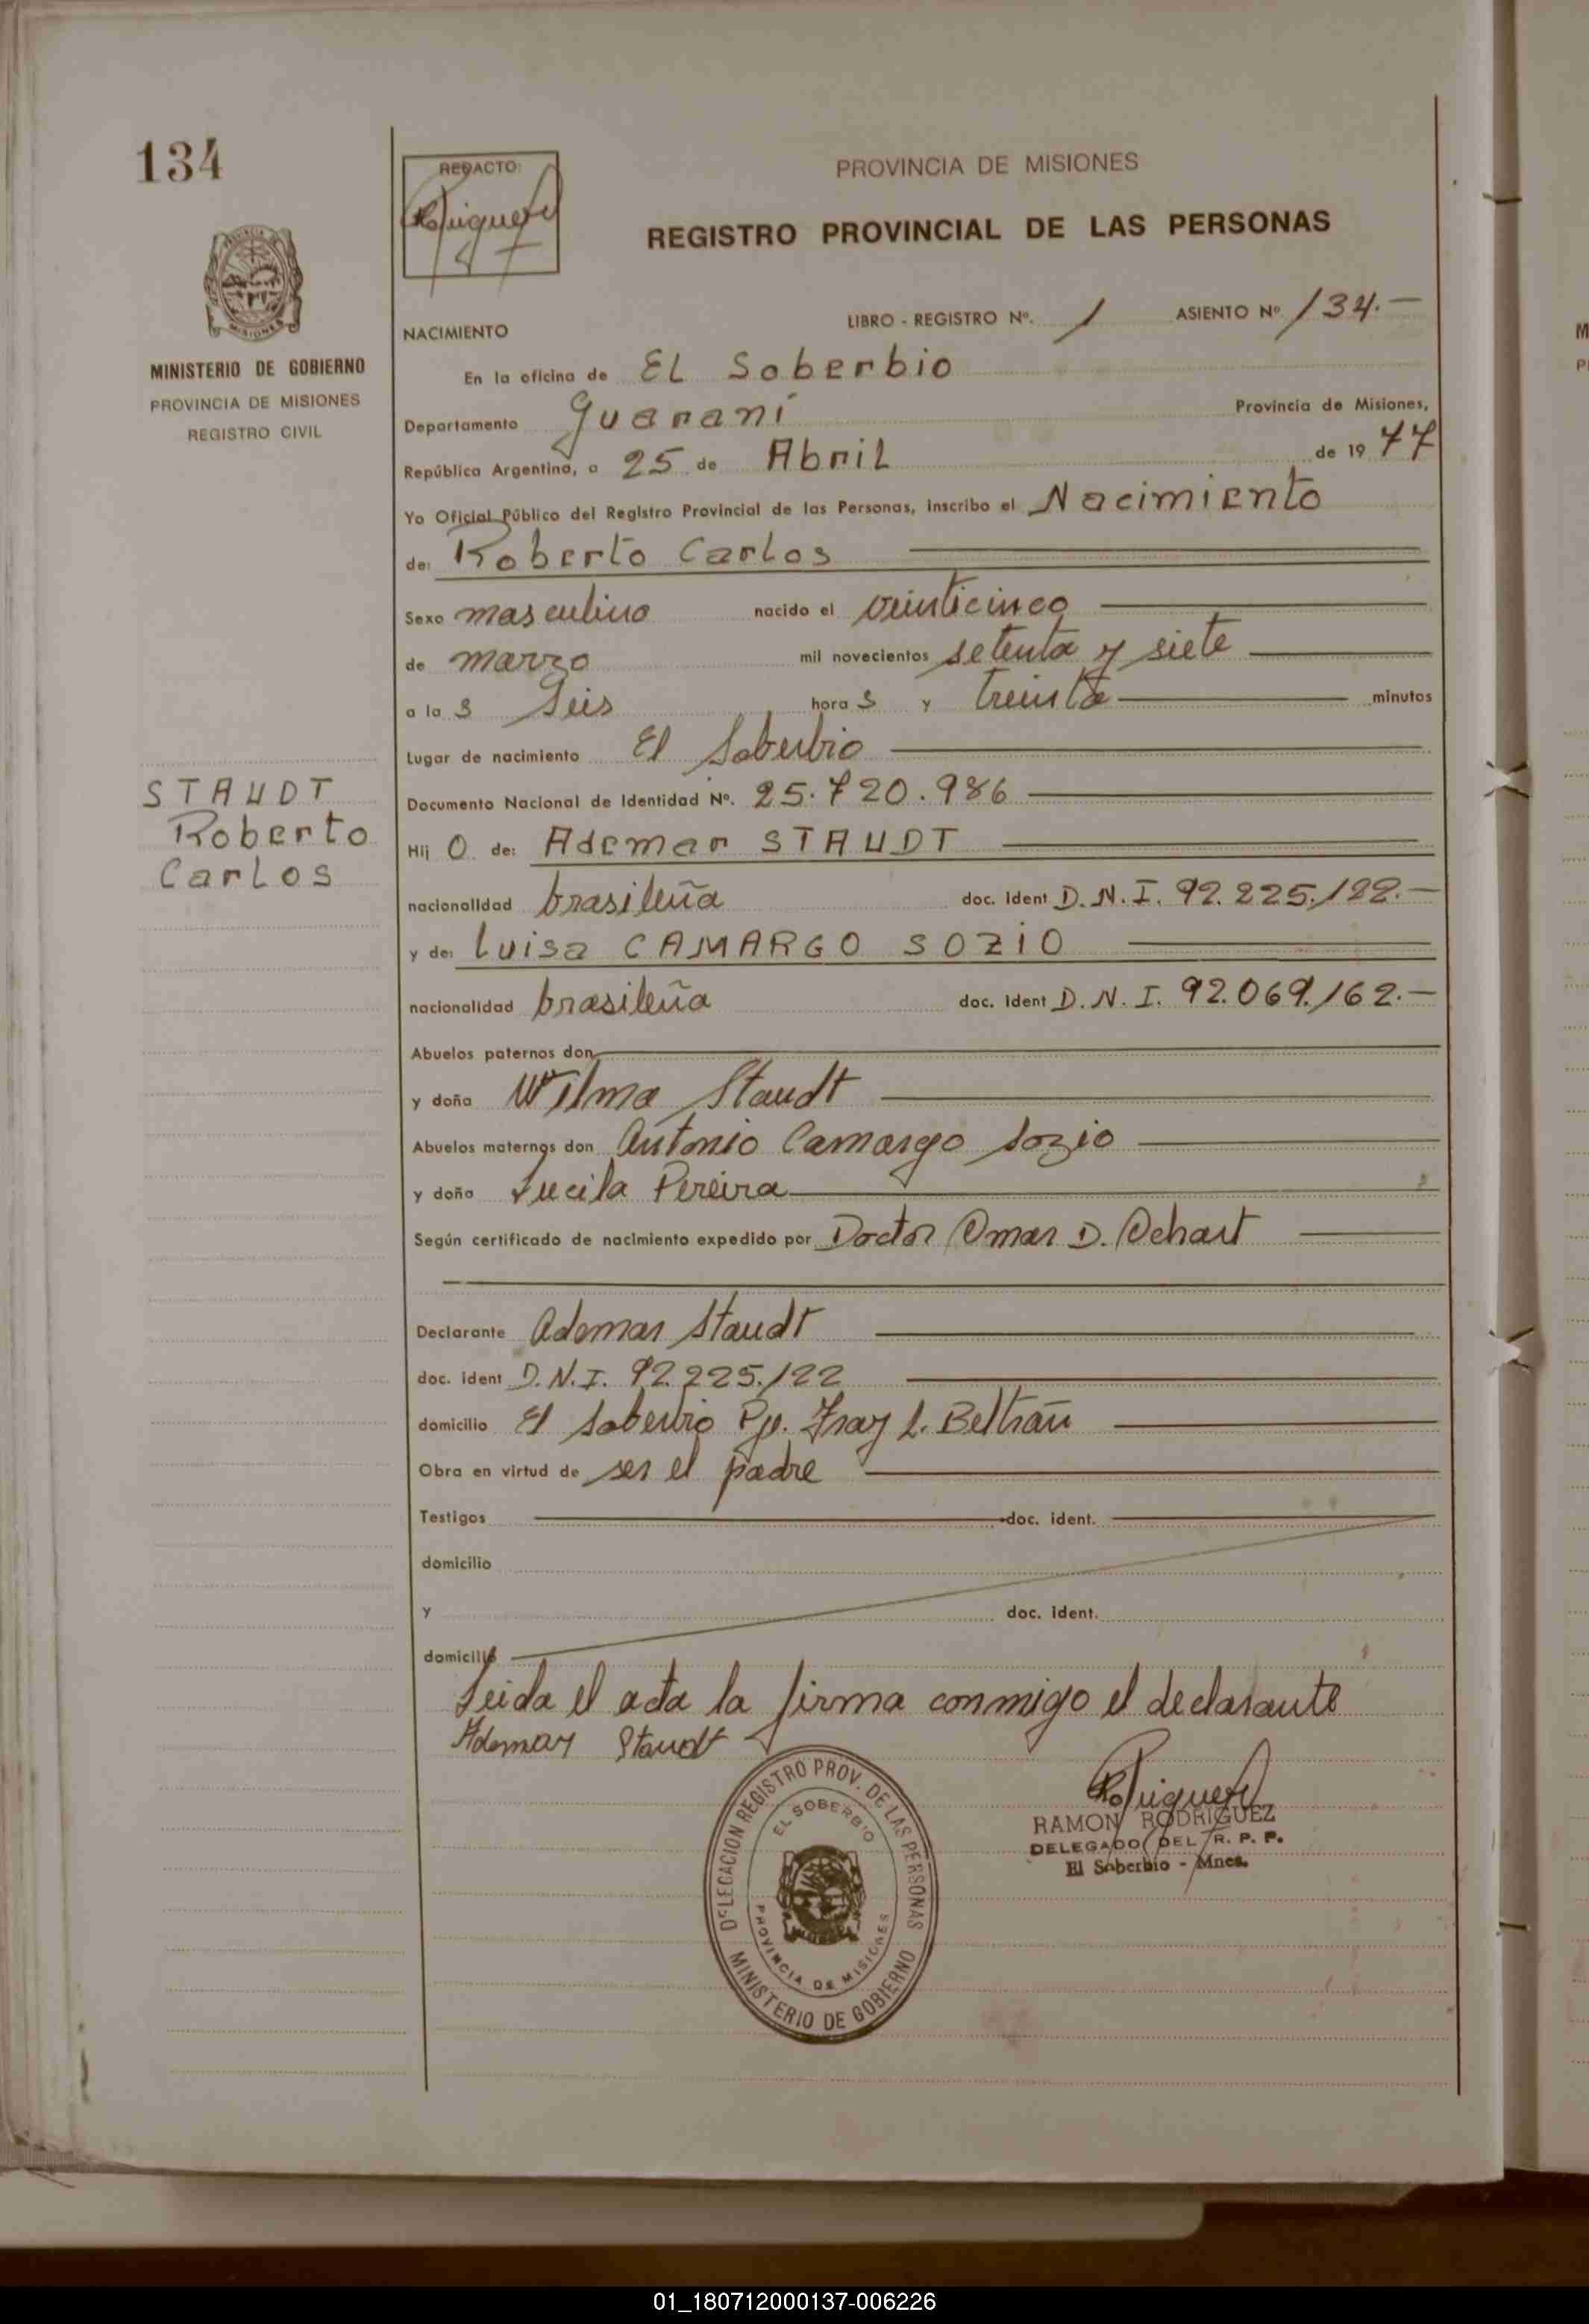 134
MINISTERIO DE GOBIERNO
PROVINCIA DE MISIONES
REGISTRO CIVIL
STAUDT
Roberto
Carlos
REDACTO:
PROVINCIA DE MISIONES
REGISTRO PROVINCIAL DE LAS PERSONAS
NACIMIENTO LIBRO - REGISTRO Nº. 1 ASIENTO Nº 134.-
En la oficina de EL Soberbio
Departamento Guaraní Provincia de Misiones,
República Argentina, a 25 de Abril de 19 77
Yo Oficial Público del Registro Provincial de las Personas, inscribo el Nacimiento
de: Roberto Carlos
Sexo masculino nacido el veinticinco
de marzo mil novecientos setenta y siete
a las Seis horas y treinta minutos
Lugar de nacimiento El Soberbio
Documento Nacional de Identidad Nº. 25.720.986
Hijo de: Ademar STAUDT
nacionalidad brasileña doc. ident D.N.I. 92.225.122.-
y de: Luisa CAMARGO SOZIO
nacionalidad brasileña doc. ident D.N.I. 92.069.162.-
Abuelos paternos don
y doña Wilma Staudt
Abuelos maternos don Antonio Camargo Sozio
y doña Lucila Pereira
Según certificado de nacimiento expedido por Doctor Omar D. Dehart
Declarante Ademar Staudt
doc. ident D.N.I. 92.225.122
domicilio El Soberbio Pje. Fray L. Beltrán
Obra en virtud de ser el padre
Testigos doc. ident.
domicilio
y doc. ident.
domicilio
Leida el acta la firma conmigo el declarante
Ademar Staudt
DELEGACION REGISTRO PROV. DE LAS PERSONAS
EL SOBERBIO
PROVINCIA DE MISIONES
MINISTERIO DE GOBIERNO
RAMON RODRIGUEZ
DELEGADO DEL R. P. P.
El Soberbio - Mnes.
01_180712000137-006226